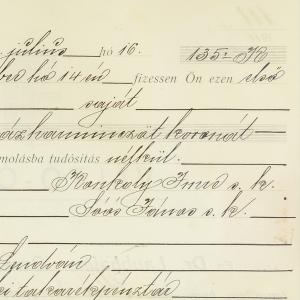 július hó 16. 135.- K
hó 14 én fizessen Ön ezen első
saját
száz harminczöt koronát
molásba tudósítás nélkül.
Konkoly Imre s. k.
Soós János s. k.
Lendván
takarékpénztár